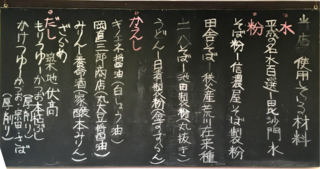 当店使用している材料
水
平成の名水百選 毘沙門水
粉
そば粉・信濃屋そば製粉
田舎そば 秩父産荒川在来種
二八そば 池田製粉(丸抜き)
うどん・日清製粉(金のすずらん)
かえし
キノエネ醤油(白しょう油)
岡直三郎商店(丸大豆醤油)
みりん・養命酒(家醸本みりん)
ざらめ
だし
もりつゆ・かつお本節(厚削り)
かけつゆ・かつお 宗田 さば(厚削り)